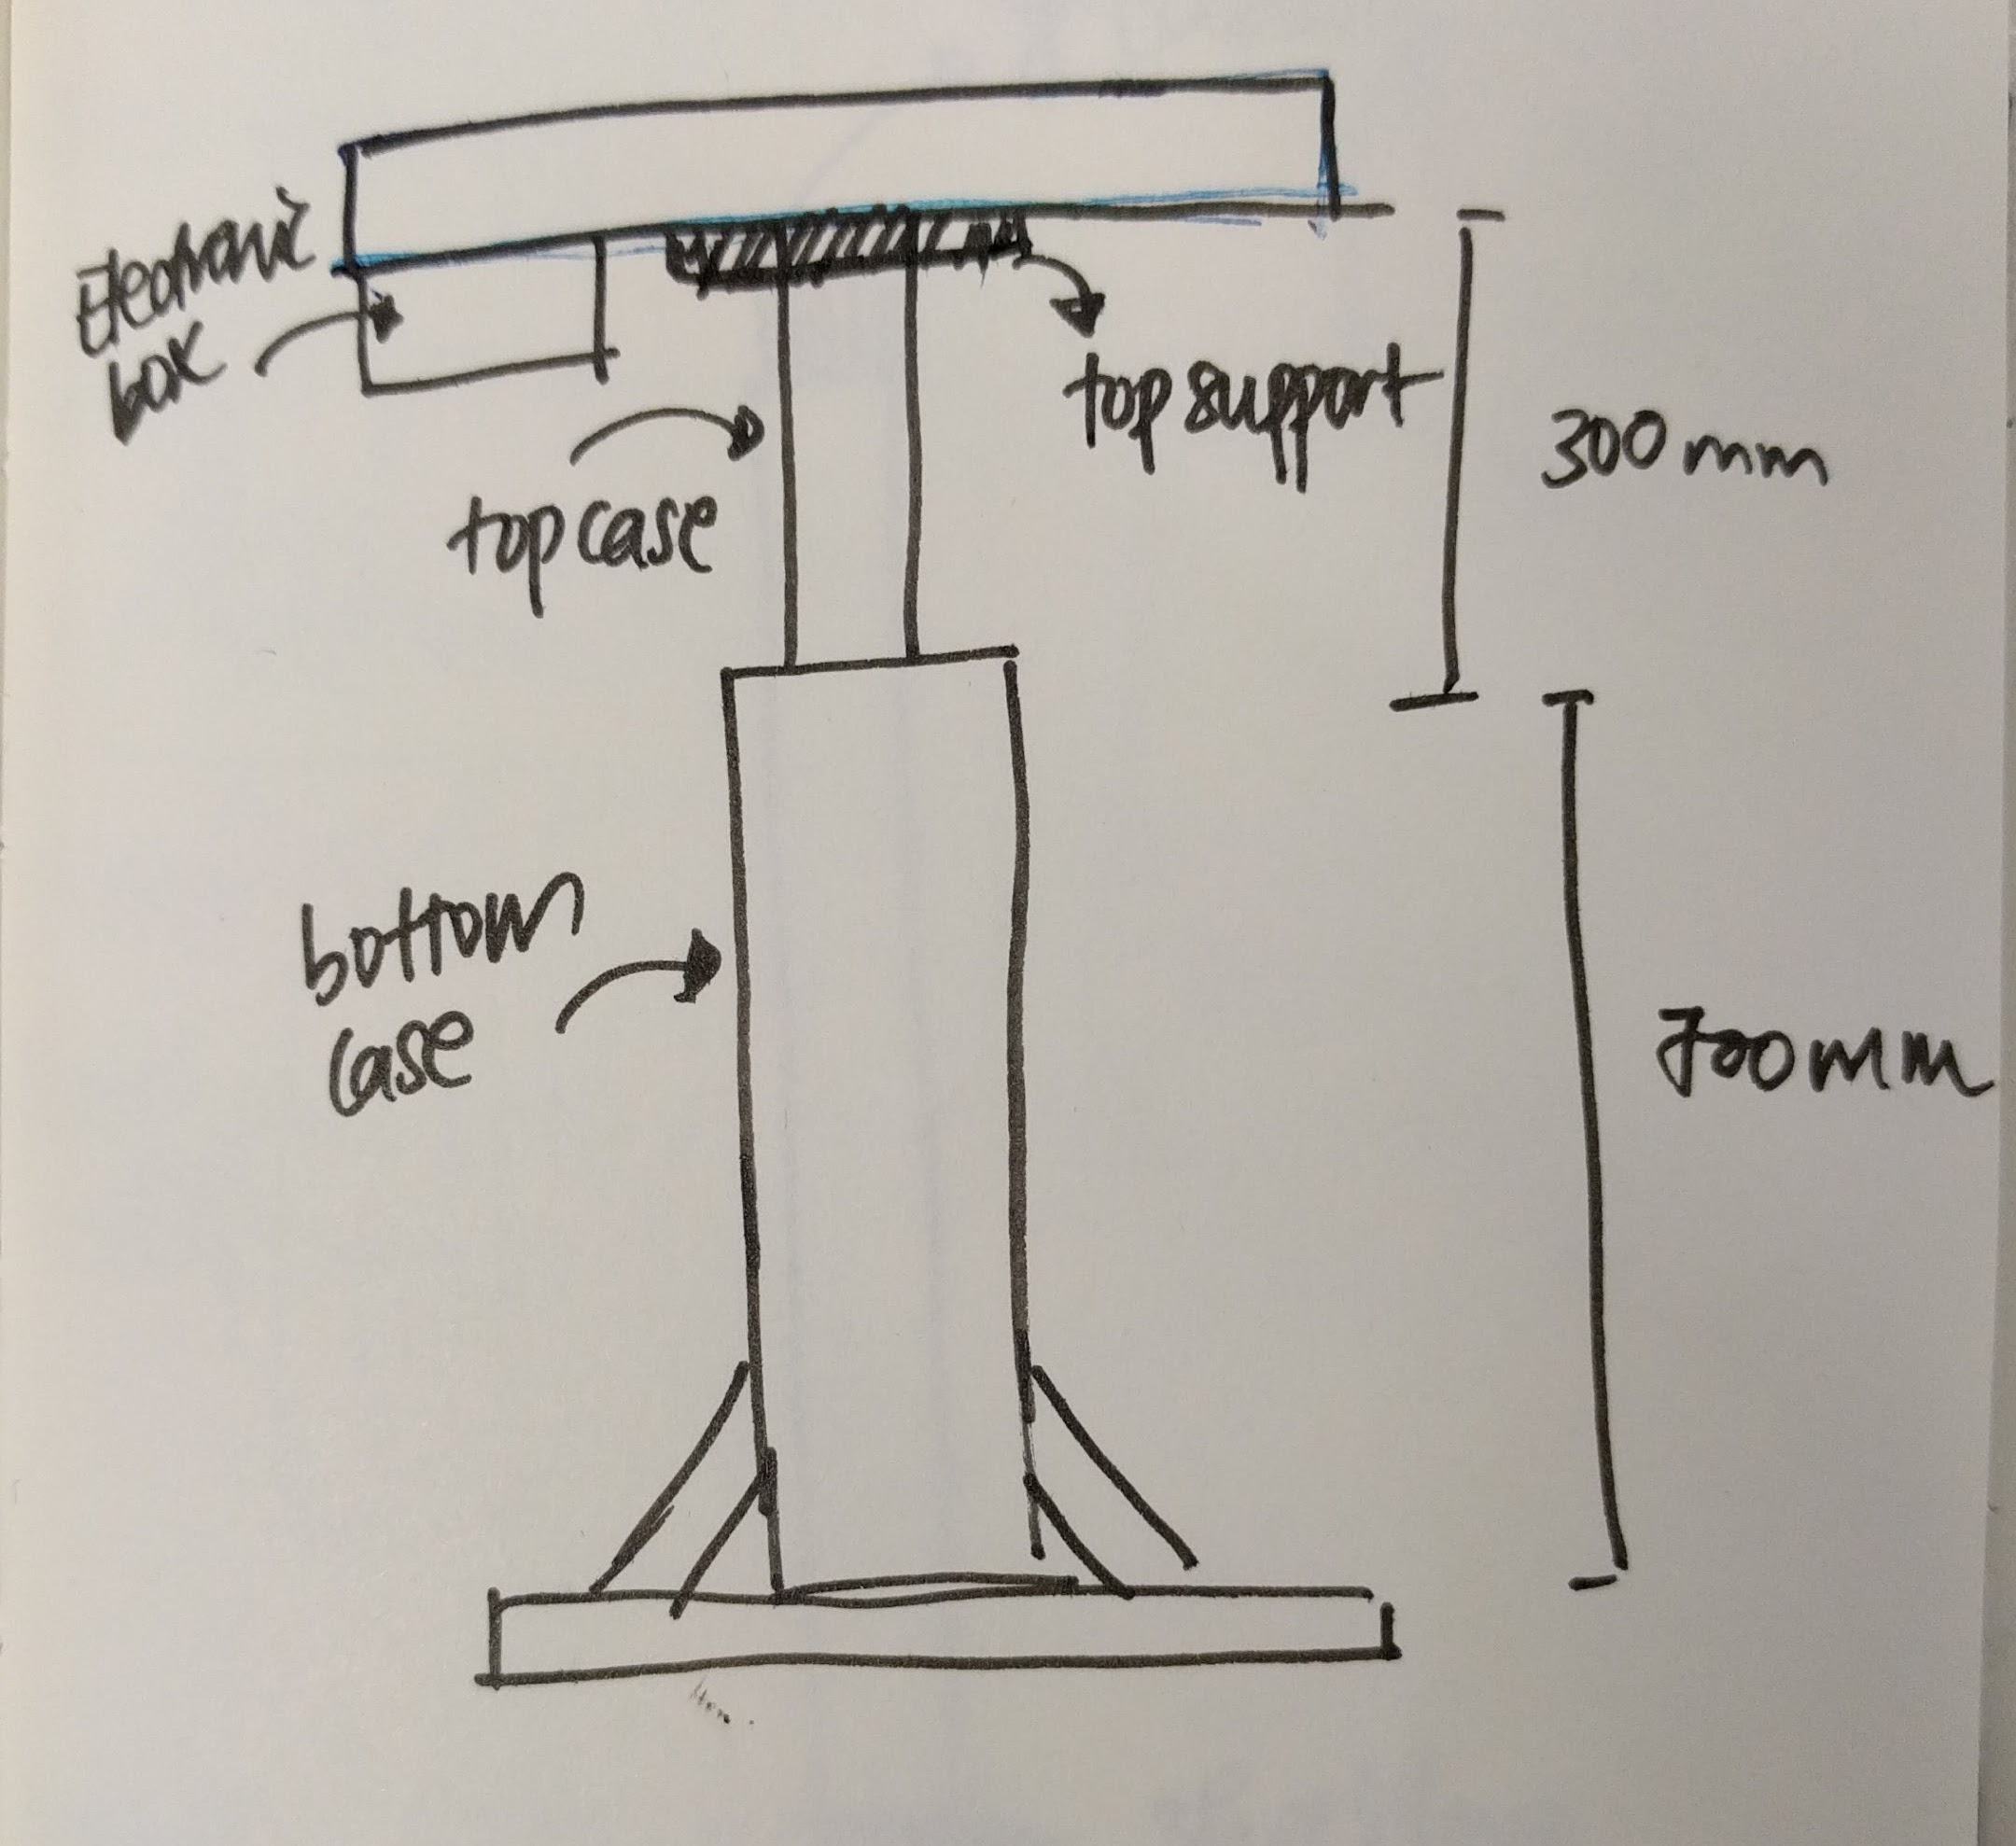 Electronic
box
top support
300mm
top case
bottom
case
700mm